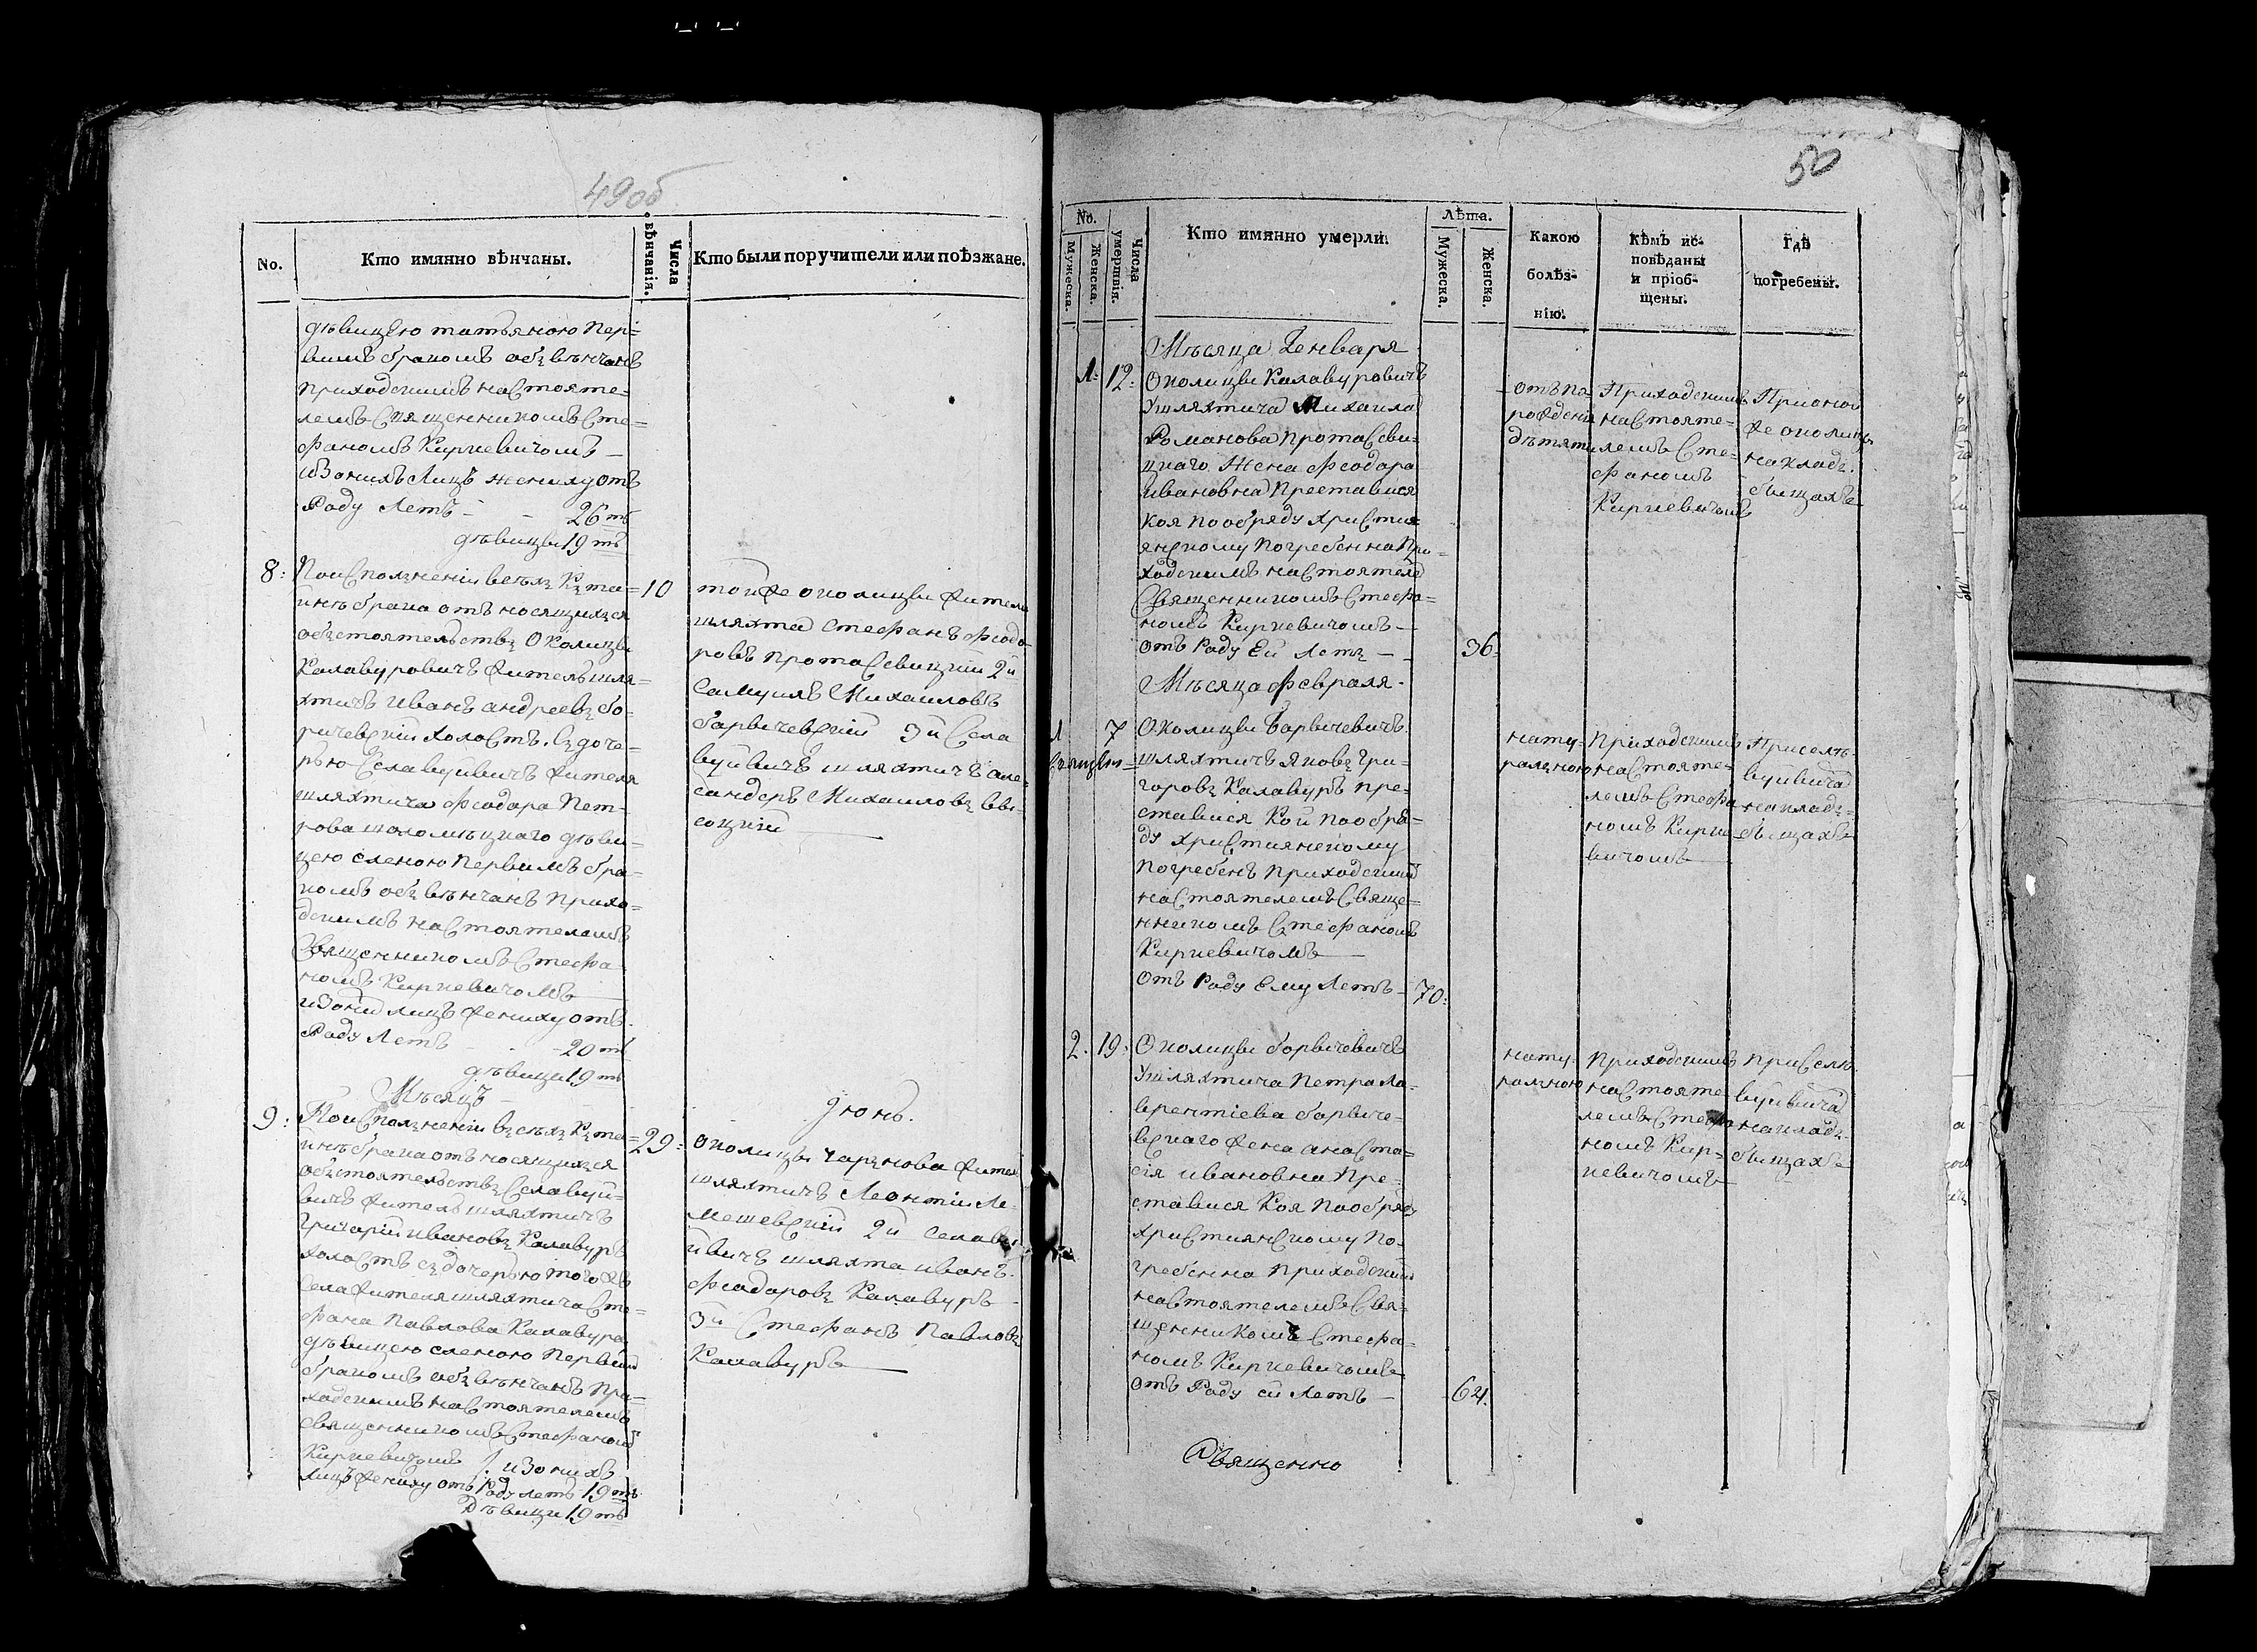 49об
No.
Кто имянно вѣнчаны.
Числа
вѣнчанія.
Кто были поручители или поѣзжане.
дѣвицею татьяною пер=
вимъ бракомъ обзвѣнчанъ
приходскимъ настояте=
лемъ Священникомъ Сте=
фаномъ Киркевичомъ —
изонихъ Лицъ жениху отъ
Раду Летъ - - 26ть
дѣвицы 19 ть
8: По исполненіи всѣхъ Кзта= 10
инѣ брака отъ носящихся
обстоятельствъ Околицы
Калавуровичъ жителъ шля=
хтичъ Иванъ андреевъ бо=
ричевскій холостъ. Сз доче=
рью Села вуйвичъ жителя
шляхтича Феодора Пет=
рова шоломѣцкаго дѣви=
цею еленою первимъ бра=
комъ обз вѣнчанъ прихо=
дскимъ настоятелемъ
Священникомъ Стефа
номъ Киркевичомъ
изони лицъ жениху отъ
Раду Летъ - - 20 ть
дѣвицы 19 ть
тойже околицы жители
шляхта Стефанъ Феодо
ровъ протасевицкій 2й
Самуилъ Михаиловъ
барвичевскій 3й Села
вуйвичъ шляхтичъ але=
сандеръ Михаиловъ вы=
соцкій
Мѣсяцъ
Іюнь.
9: По исполненіи взсѣхъ Кзта= 29:
инѣ брака отъ носящихся
обстоятельствъ Села вуй=
вичъ жителъ шляхтичъ
Григорій ивановъ Калавуръ
холостъ сз дочерью того жъ
села жителя шляхтича Сте=
фана Павлова Калавура
дѣвицею еленою первимъ
бракомъ обз вѣнчанъ при=
ходскимъ настоятелемъ
священникомъ Стефаномъ
Киркевичомъ /: изонихъ
лицъ жениху отъ Раду летъ 19 ть
Дѣвицы 19 ть
околицы Чарнова жител
шляхтичъ Леонтій Ле=
мешевскій 2й села ву
йвичъ шляхта иванъ
Феодоровъ Калавуръ
3й Стефанъ Павловъ
Калавуръ
50
No.
Мужеска.
Женска.
Числа
умершія.
Кто имянно умерли.
Лѣта.
Мужеска.
Женска.
Какою
болѣз-
нію.
Кѣмъ ис-
повѣданы
и пріоб-
щены.
Гдѣ
погребены.
Мѣсяца Генваря
1: 12: Околицы Калавуровичъ
Ушляхтича Михаила
Романова протасеви=
цкаго жена Феодора
ивановна преставися
коя по обряду христи=
янскому погребенна при=
ходскимъ настоятеле
Священникомъ Стефа=
номъ Киркевичомъ —
отъ Раду Ей Летъ — 36:
отъ по=
рождени
дѣтяти
Приходскимъ
настояте=
лемъ Сте=
фаномъ
Киркевичомъ
При оной
же околицы
на кладз.
бищахъ
Мѣсяца февраля.
1 7 Околицы Барвичевичъ
шляхтичъ яковъ гри=
горовъ Калавуръ пре=
ставися кой по обря=
ду християнскому
погребенъ приходским
настоятелемъ Свяще=
нникомъ Стефаномъ
Киркевичомъ
отъ Раду Ему Летъ — 70:
нату=
ралною
Приходскимъ
настояте=
лемъ Стефа
номъ Кирке
вичомъ
При селѣ
вуйвича
на кладз=
бищахъ
2. 19: Околицы борвичевичъ
Ушляхтича петра ла=
врентіева борвиче=
вскаго жена анаста=
сія ивановна пре=
ставися коя по обряду
християнскому по=
гребенна приходским
настоятелемъ Свя=
щенникомъ Стефа=
номъ Киркевичомъ
отъ Раду ей Летъ — 64.
нату=
ралною
приходскимъ
настояте
лемъ Стефа
номъ Кир=
кевичомъ
при селѣ
вуйвича
на кладз
бищахъ
Священно